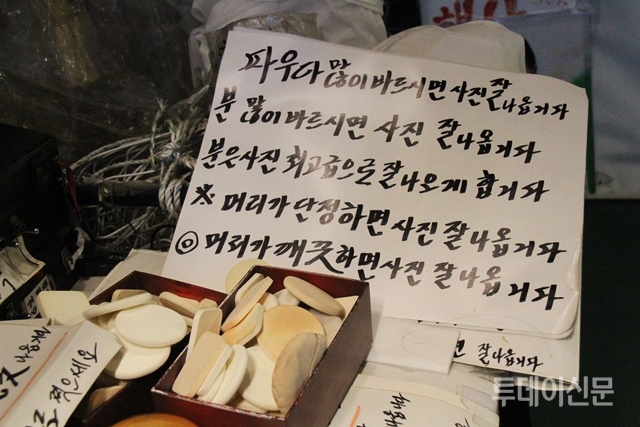 파우다 많이 바르시면 사진 잘 나옵니다
분 많이 바르시면 사진 잘 나옵니다
분은 사진 최고급으로 잘 나오게 합니다
※ 머리가 단정하면 사진 잘 나옵니다
◎ 머리가 깨끗하면 사진 잘 나옵니다
면 잘 나옵니다
투데이신문